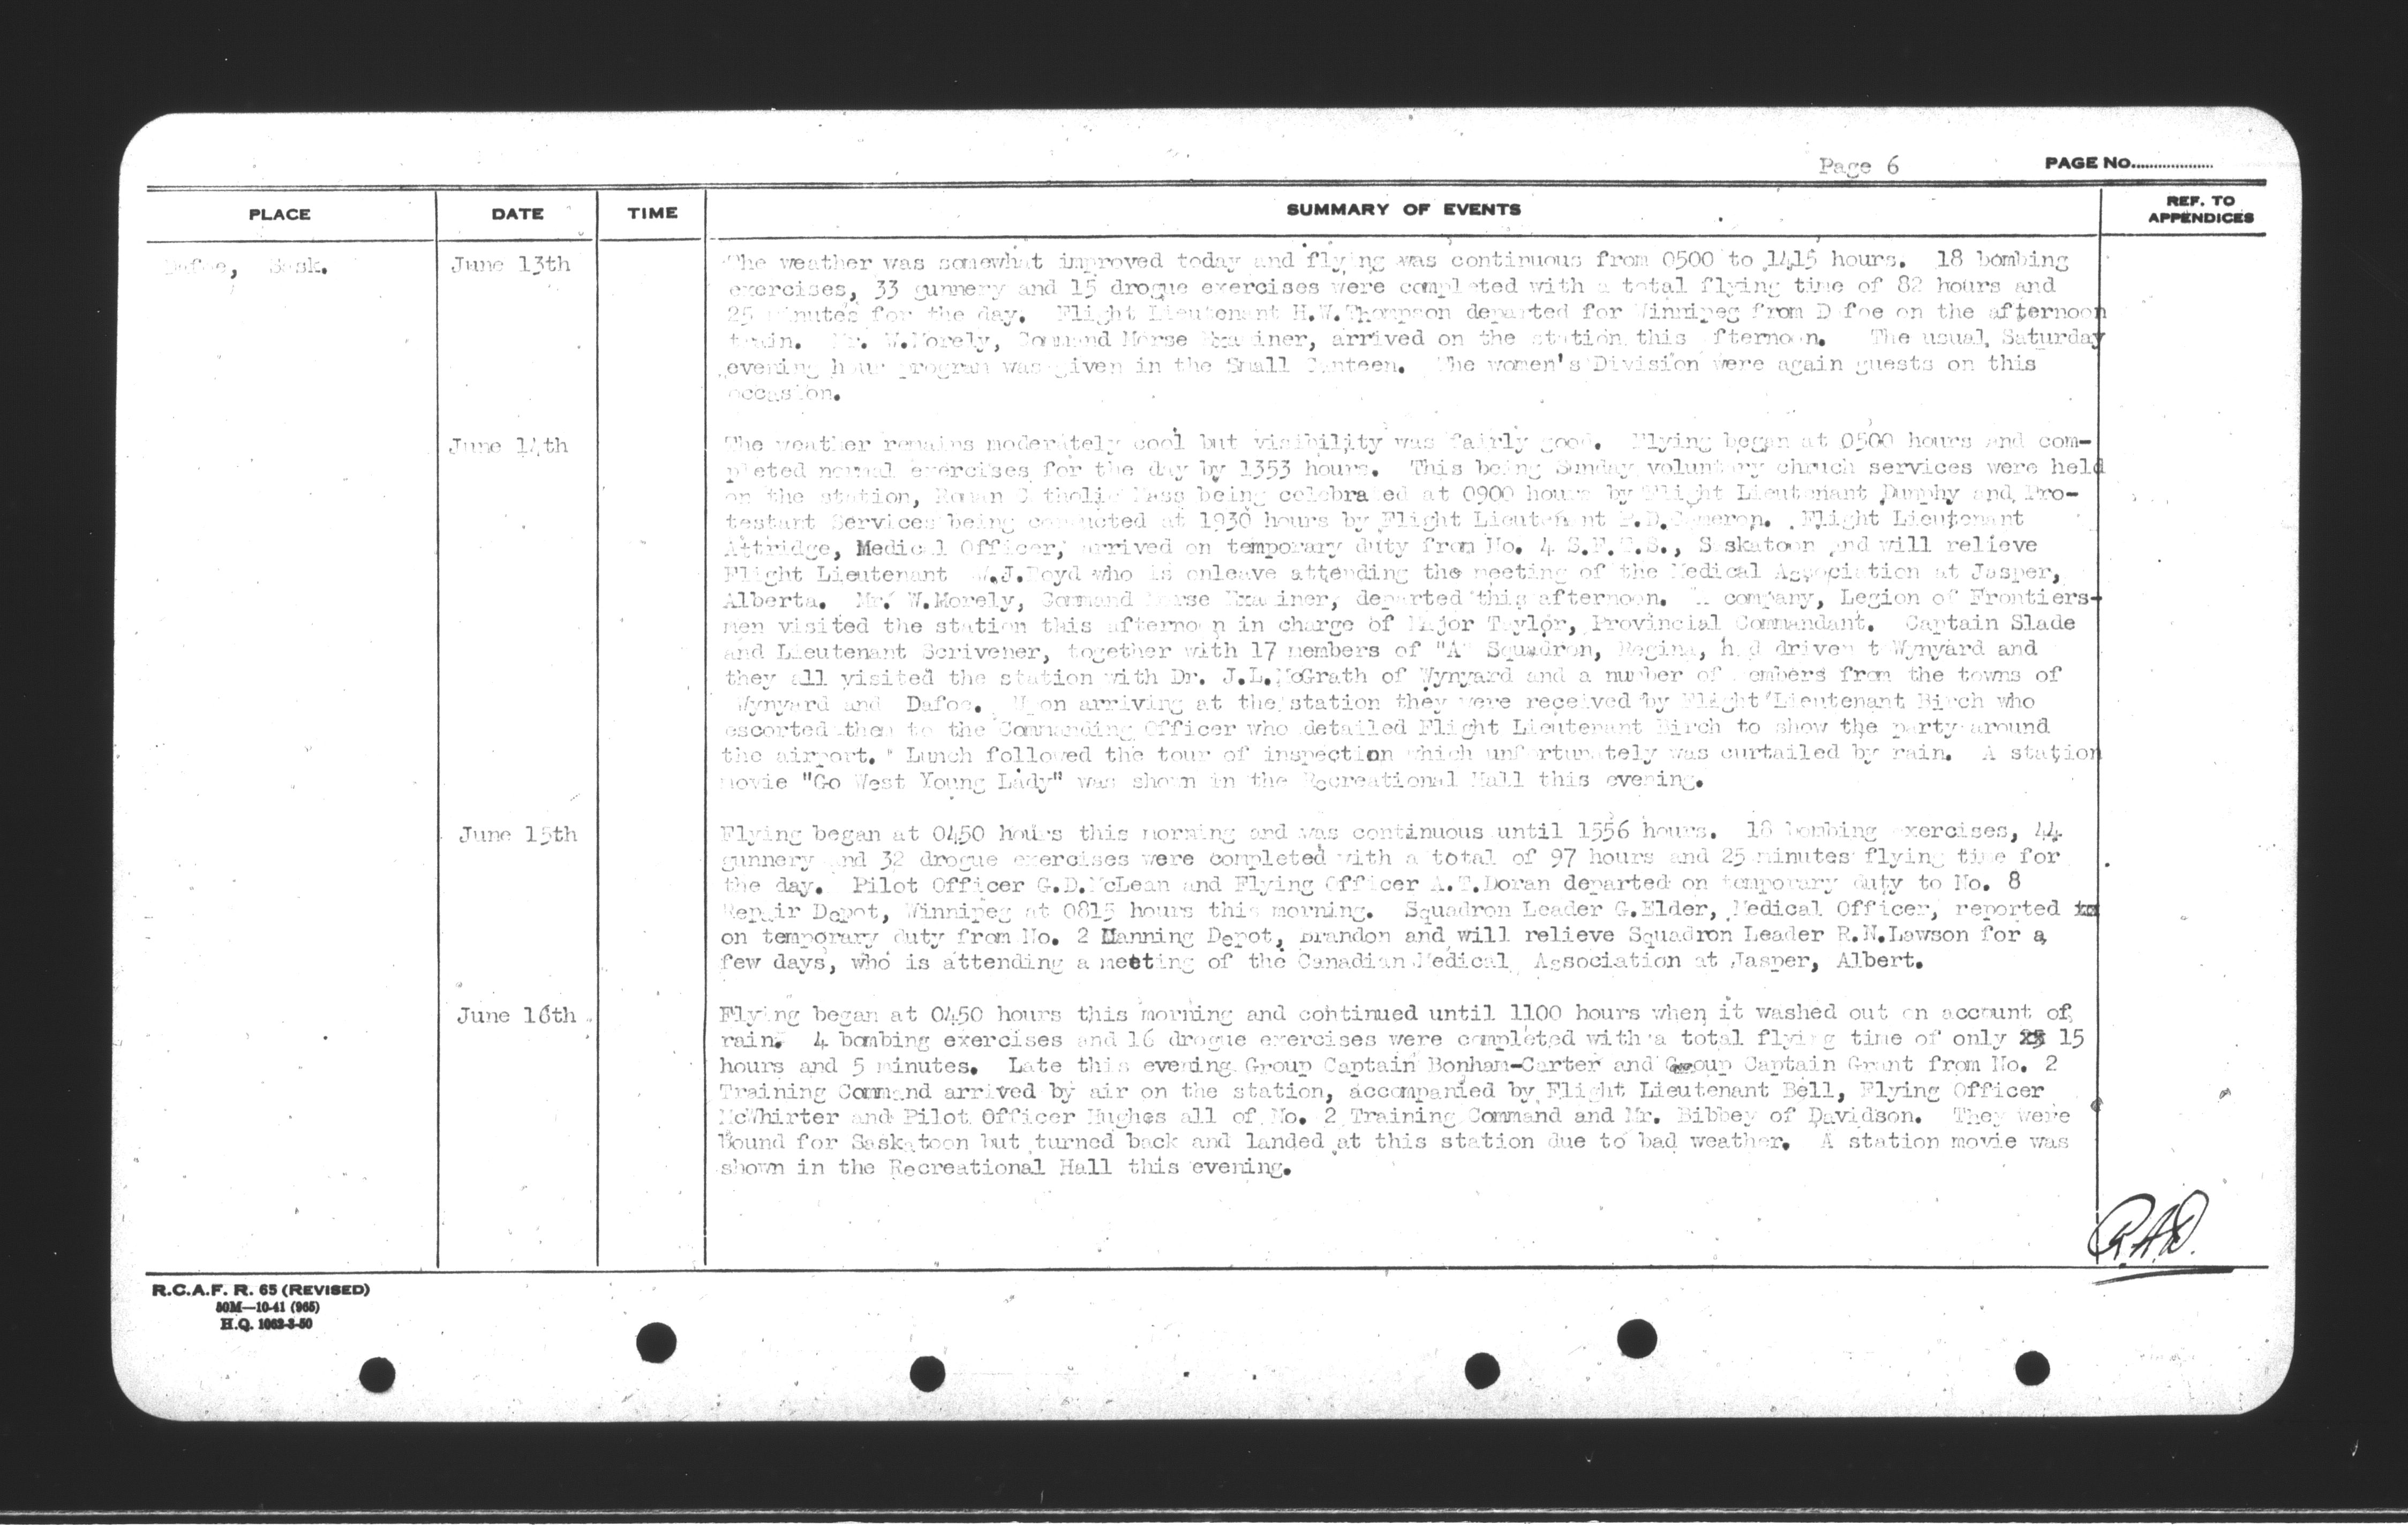 Page 6 PAGE No...................
PLACE DATE TIME SUMMARY OF EVENTS REF. TO APPENDICES
Dafoe, Sask. June 13th The weather was somewhat improved today and flying was continuous from 0500 to 1415 hours. 18 bombing
exercises, 33 gunnery and 15 drogue exercises were completed with a total flying time of 82 hours and
25 minutes for the day. Flight Lieutenant H.W.Thompson departed for Winnipeg from Dafoe on the afternoon
train. Mr. W.Morely, Command Morse Examiner, arrived on the station this afternoon. The usual Saturday
evening hour program was given in the Small Canteen. The women's Division were again guests on this
occasion.
June 14th The weather remains moderately cool but visibility was fairly good. Flying began at 0500 hours and com-
pleted normal exercises for the day by 1353 hours. This being Sunday voluntary chruch services were held
on the station, Roman Catholic Mass being celebrated at 0900 hours by Flight Lieutenant Dunphy and Pro-
testant Services being conducted at 1930 hours by Flight Lieutenant P.D.Cameron. Flight Lieutenant
Attridge, Medical Officer, arrived on temporary duty from No. 4 S.F.T.S., Saskatoon and will relieve
Flight Lieutenant W.J.Boyd who is onleave attending the meeting of the Medical Association at Jasper,
Alberta. Mr. W.Morely, Command Morse Examiner, departed this afternoon. A company, Legion of Frontiers-
men visited the station this afternoon in charge of Major Taylor, Provincial Commandant. Captain Slade
and Lieutenant Scrivener, together with 17 members of "A" Squadron, Regina, had driven t Wynyard and
they all visited the station with Dr. J.L.McGrath of Wynyard and a number of members from the towns of
Wynyard and Dafoe. Upon arriving at the station they were received by Flight Lieutenant Birch who
escorted them to the Commanding Officer who detailed Flight Lieutenant Birch to show the party around
the airport. Lunch followed the tour of inspection which unfortunately was curtailed by rain. A station
movie "Go West Young Lady" was shown in the Recreational Hall this evening.
June 15th Flying began at 0450 hours this morning and was continuous until 1556 hours. 18 bombing exercises, 44
gunnery and 32 drogue exercises were completed with a total of 97 hours and 25 minutes flying time for
the day. Pilot Officer G.D.McLean and Flying Officer A.T.Doran departed on temporary duty to No. 8
Repair Depot, Winnipeg at 0815 hours this morning. Squadron Leader G.Elder, Medical Officer, reported to
on temporary duty from No. 2 Manning Depot, Brandon and will relieve Squadron Leader R.N.Lawson for a
few days, who is attending a meeting of the Canadian Medical Association at Jasper, Albert.
June 16th Flying began at 0450 hours this morning and continued until 1100 hours when it washed out on account of
rain. 4 bombing exercises and 16 drogue exercises were completed with a total flying time of only 15
hours and 5 minutes. Late this evening Group Captain Bonham-Carter and Group Captain Grant from No. 2
Training Command arrived by air on the station, accompanied by Flight Lieutenant Bell, Flying Officer
McWhirter and Pilot Officer Hughes all of No. 2 Training Command and Mr. Bibbey of Davidson. They were
bound for Saskatoon but turned back and landed at this station due to bad weather. A station movie was
shown in the Recreational Hall this evening.
R.A.D.
R.C.A.F. R. 65 (REVISED)
50M—10-41 (965)
H.Q. 1062-3-50